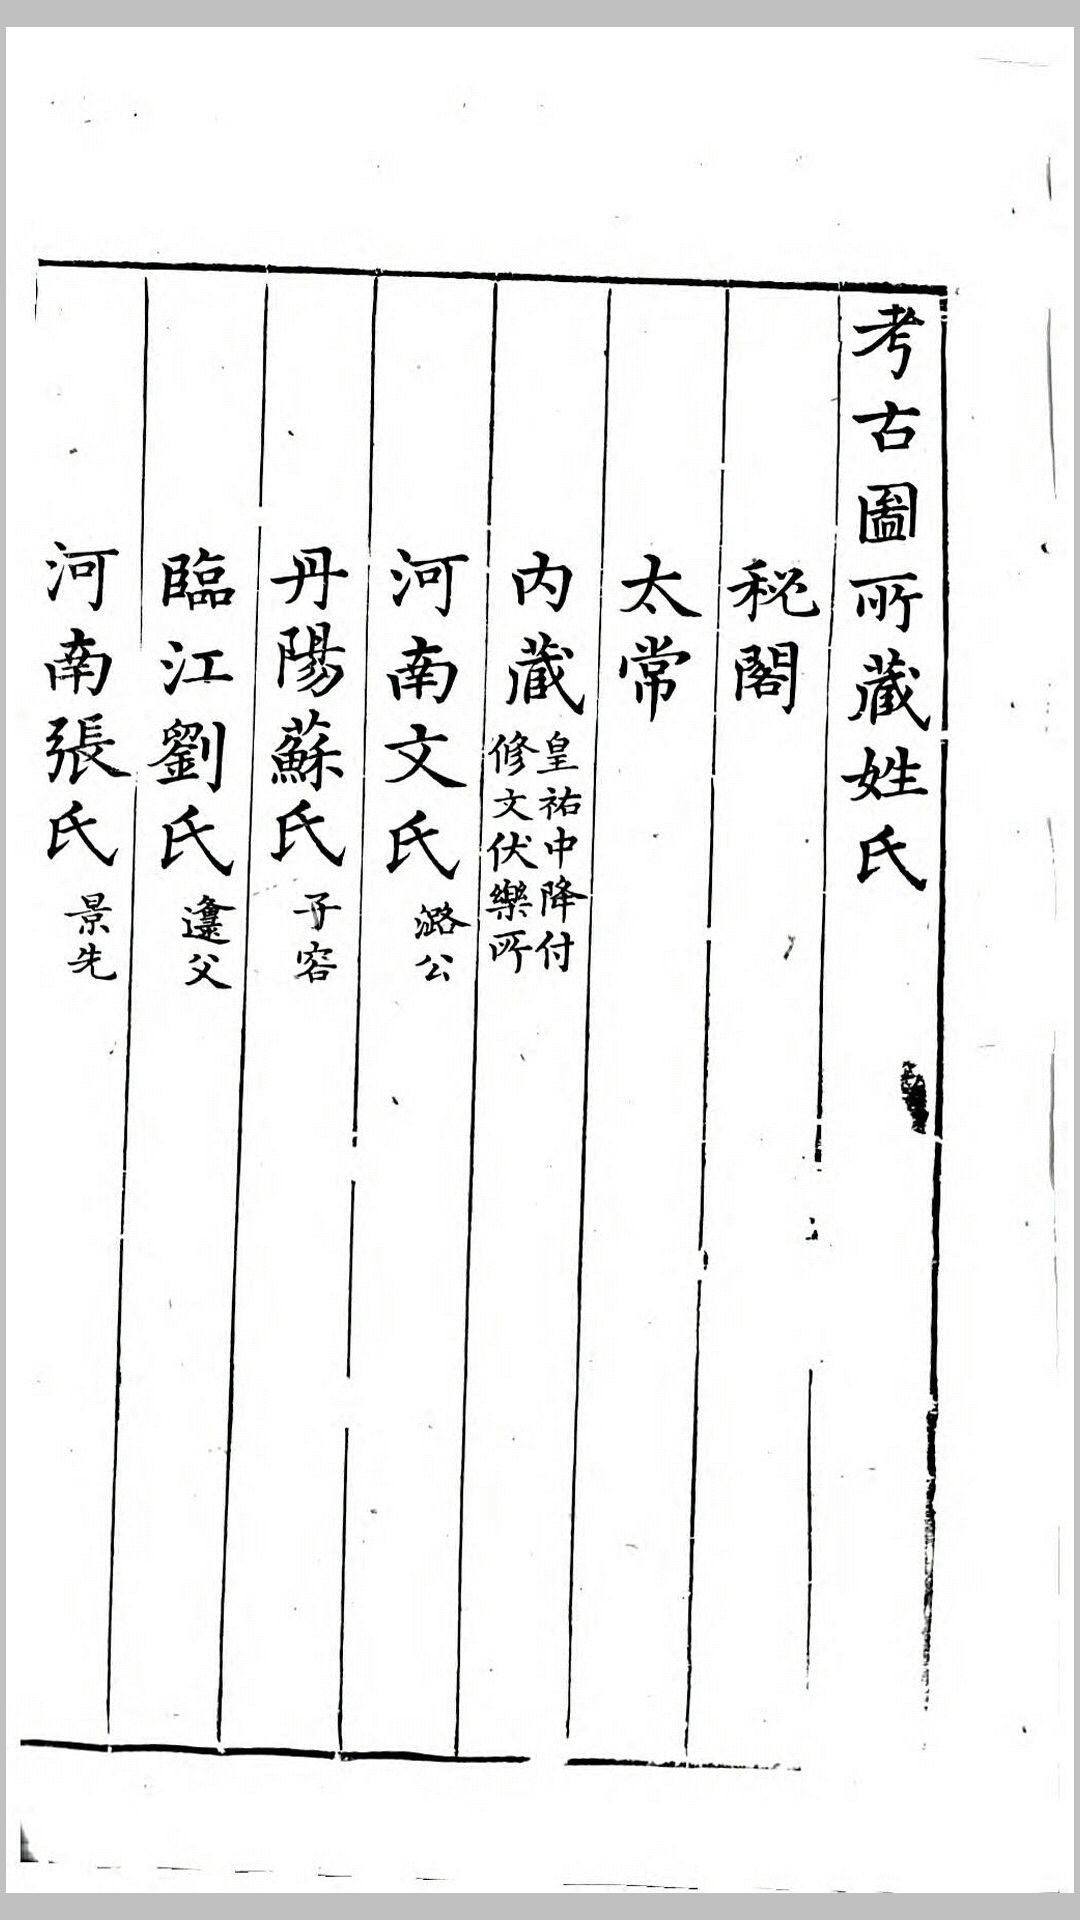 考古圖所藏姓氏
秘閣
太常
内藏皇祐中降付修文伏樂所
河南文氏潞公
丹陽蘇氏子容
臨江劉氏邍父
河南張氏景先